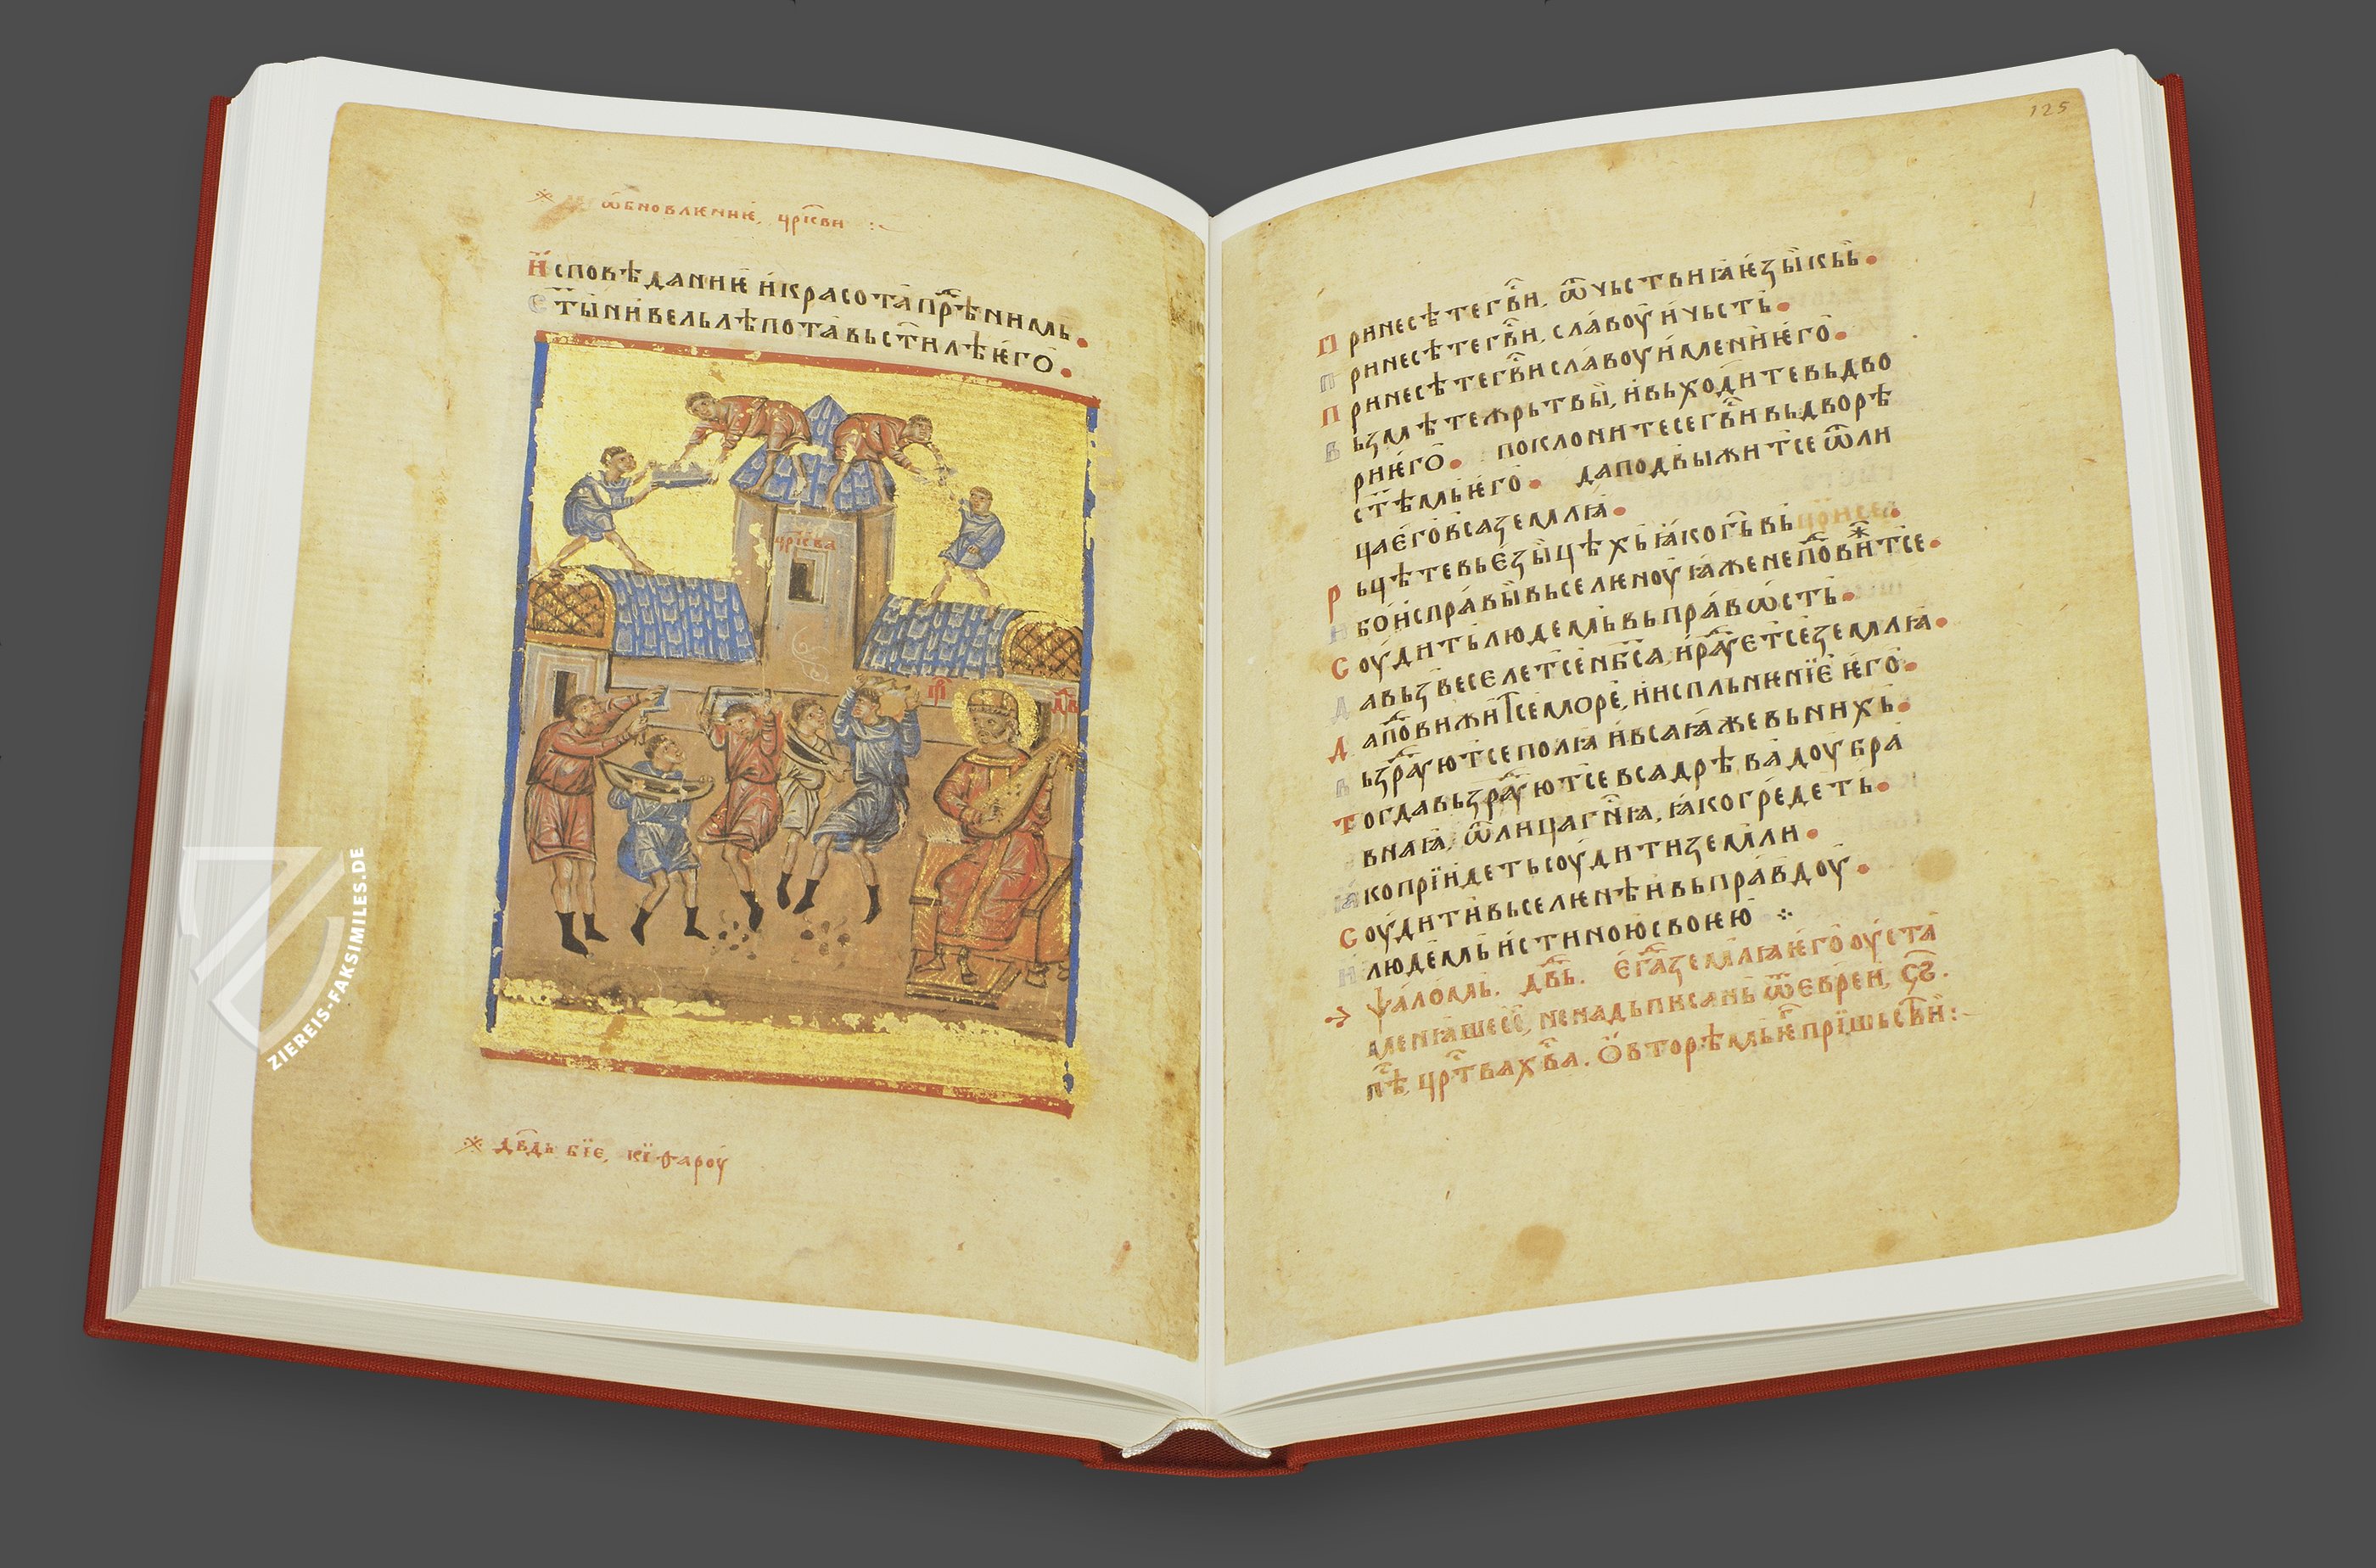 ѡ҆бновлѥниѥ, цр҃кви :~
И҆сповѣданиѥ҆ и҆красота̀пр҃ѣнимь.
Ст҃ы҆нѝвельлѣпота̀вьст҃илѣѥ҆го̀.
цр҃ква
цр҃
дв҃
дв҃дь бїе, кїѳароу
125
Принесѣтегв҃и, ѿчьствиꙗѥ҆зы҆кь.
Принесѣтегв҃и, сла́воуи҆чьсть.
Принесѣтегв҃исла́воуи҆мениѥ҆го̀.
Вьзмѣтежрьтвы҆, и҆вьходитевьдво
риѥ҆го̀. поклонитесегв҃ивьдворѣ
ст҃ѣмьѥ҆го̀. даподвыжитсеѿли
цаѥ҆го̀всаземлꙗ.
Рьцѣтевьѥ҆зы҆цѣхь ꙗ҆когь вь
боисправы҆вьселѥноую ꙗ҆жене по҆вижитсе.
соудитьлюдемьвьпра́вѡсть.
Давьзвеселетсен҃бса, и҆ра҆уѥтсеземлꙗ.
Дапо҆вижитсемо́ре, и҆исплънѥнїѥ ѥ҆го̀.
Вьзра҆уютсеполꙗ и҆всаꙗ҆жевьнихь.
Тогдавьзра҆уютсевсадрѣва̀доубра
внаꙗ, ѿлицаг҃нꙗ, ꙗ҆когредеть.
ꙗ҆коприїидетьсоудитиземли.
Соудитѝвьселѥнѣи҆вьпра́вдоу.
И людемьи҆стиноюсвоѥю ⁘
Ѱа́ломь. дв҃ь. ѥ҆газемлꙗѥ҆го̀оуста
мленꙗшесе, ненадьписань ѿѥврей, ч҃ѕ.
пѣ҃, цр҃тва х҃ва. Ѡ҆вторѣмьѥ҆ прїшьств҃и:~
ZIEREIS-FAKSIMILES.DE